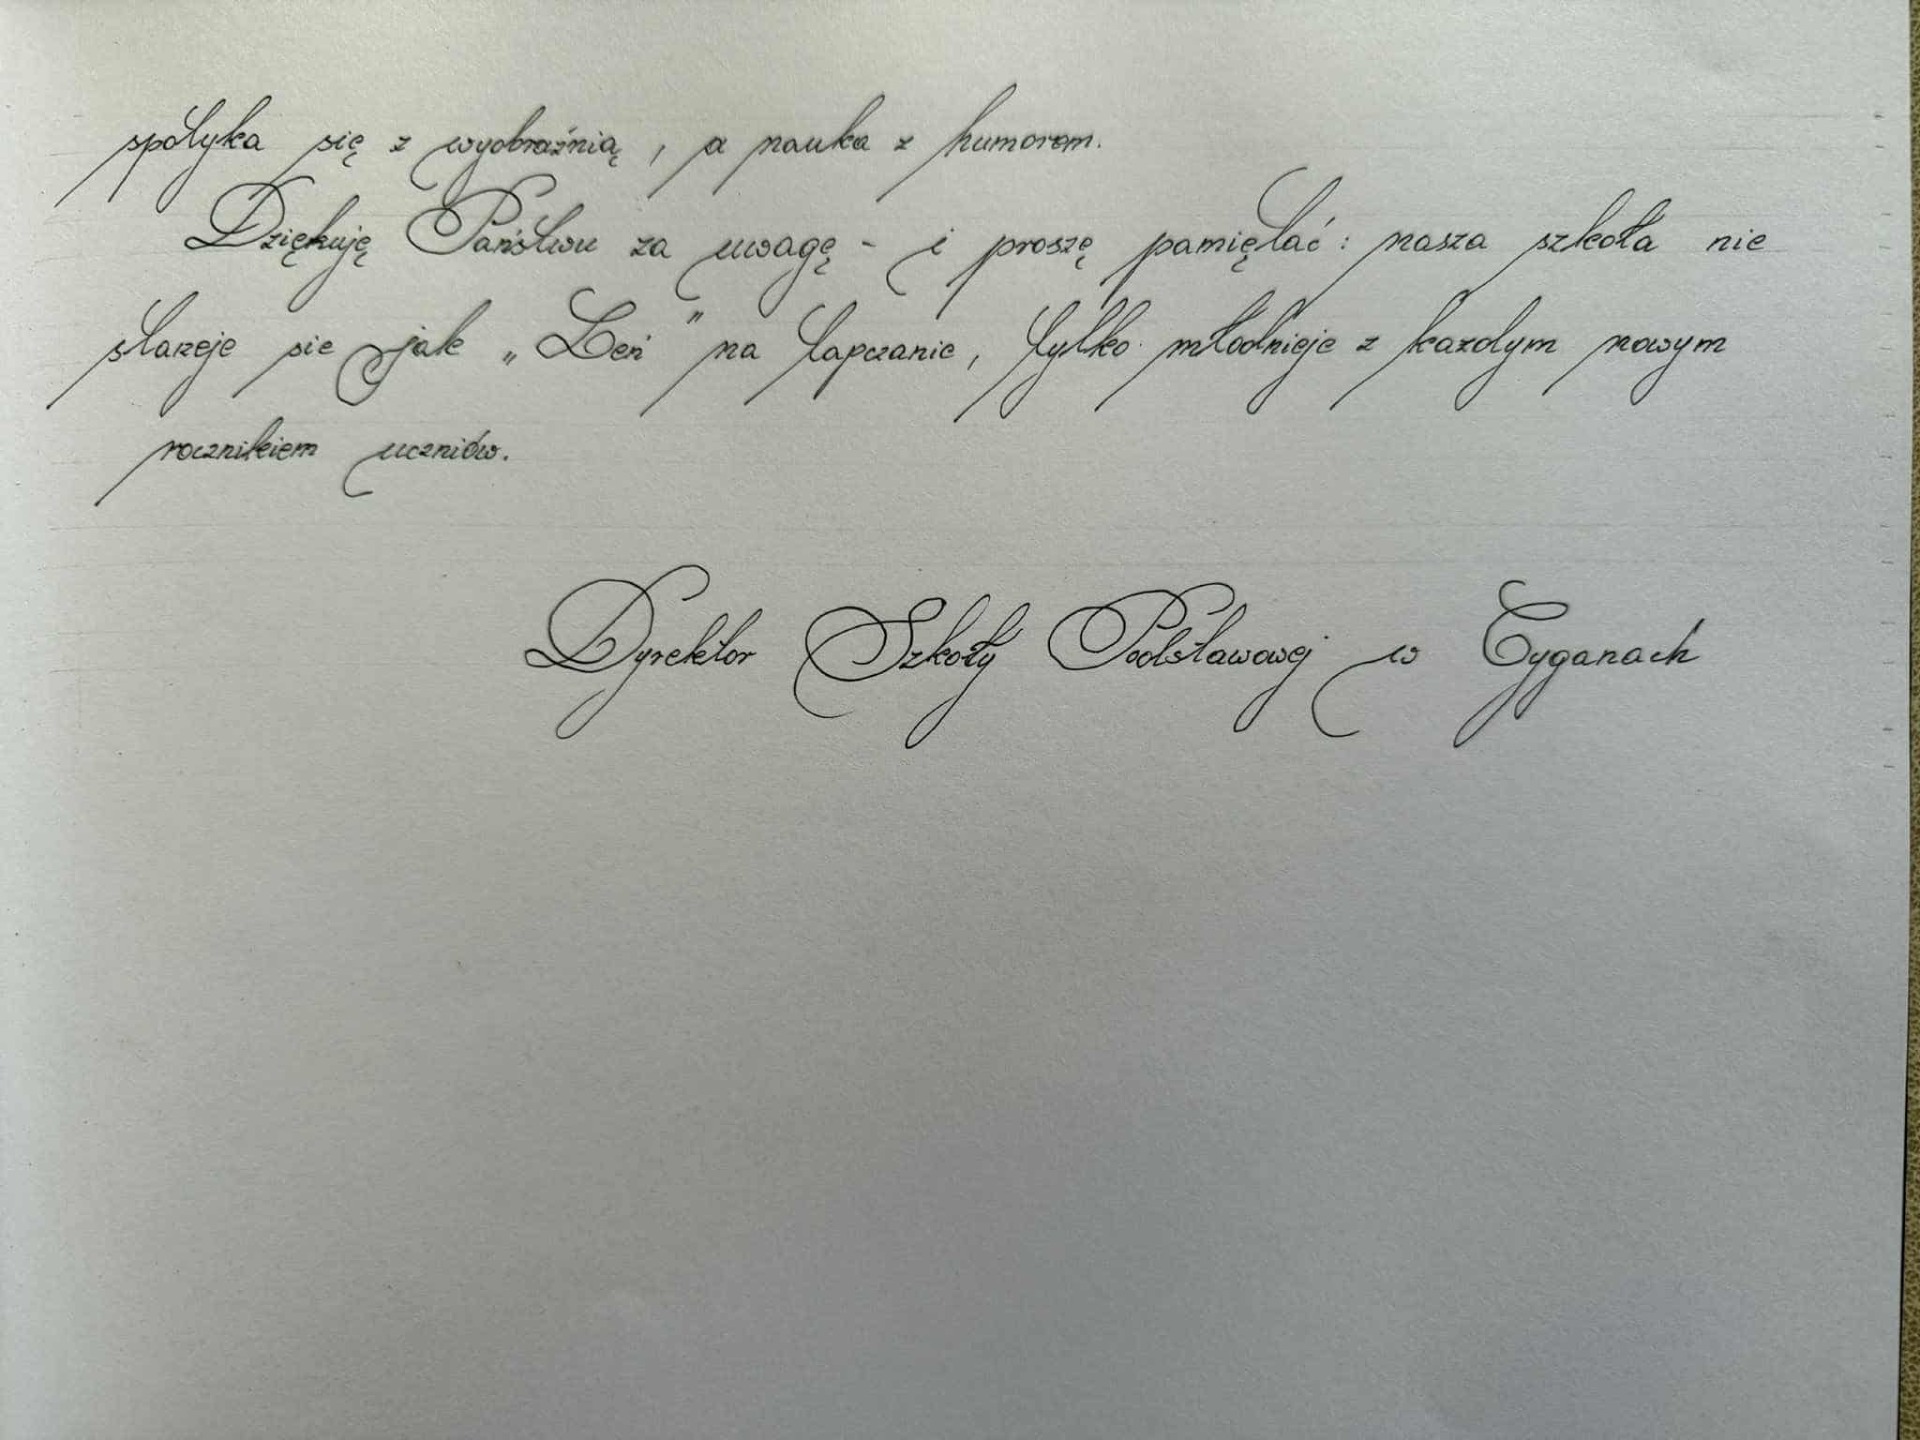 spotyka się z wyobraźnią, a nauka z humorem.
Dziękuję Państwu za uwagę - i proszę pamiętać: nasza szkoła nie
starzeje sie jak „Leń" na tapczanie, tylko młodnieje z każdym nowym
rocznikiem uczniów.
Dyrektor Szkoły Podstawowej w Cyganach